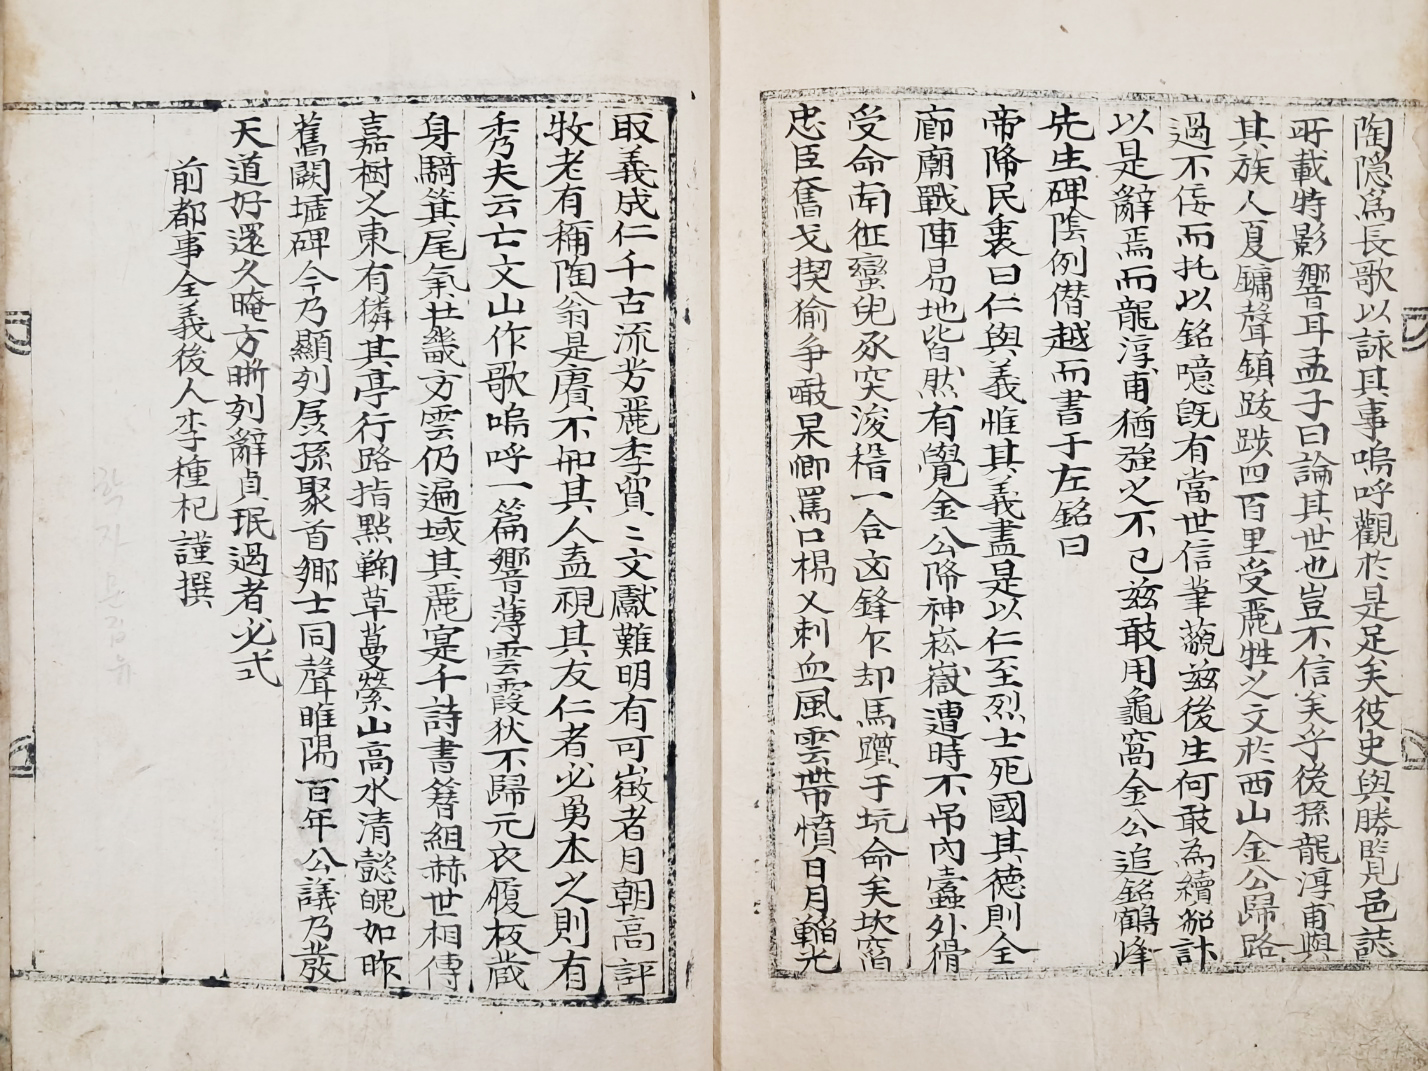 陶隠爲長歌以詠其事嗚呼觀於是足矣彼史與勝覧邑誌
所載特影響耳孟子曰論其世也豈不信矣乎後孫龍淳甫與
其族人夏鏞聲鎮跋涉四百里受麗牲之文於西山金公歸路
過不佞而托以銘噫旣有當世信筆藐玆後生何敢為續貂計
以是辭焉而龍淳甫猶强之不已玆敢用龜窩金公追銘鶴峰
先生碑陰例僣越而書于左銘曰
帝降民衷曰仁與義惟其義盡是以仁至烈士死國其德則全
廊廟戰陣易地皆然有覺金公降神嵩嶽遭時不吊內蠧外猾
受命南征蠻兇豕突浚稽一合齿鋒乍却馬躓于坑命矣坎窞
忠臣奮戈揳狳争噉杲卿罵口楊乂刺血風雲帶憤日月韜光
取義成仁千古流芳麗季質〻文獻難明有可徴者月朝高評
牧老有稱陶翁是賡不知其人盍視其友仁者必勇本之則有
秀夫云亡文山作歌嗚呼一篇響薄雲霞狄不歸元衣履板葳
身騎箕尾氣壮畿方雲仍遍域其麗寔千詩書簪組赫世相傳
嘉樹之東有獜其亭行路指點鞠草蔓縈山高水清懿魄如昨
舊闕墟碑今乃顯列孱孫聚首鄉士同聲睢陽百年公議乃發
天道好還久晻方晣刻辭貞珉過者必式
前都事全義後人李種杞謹撰